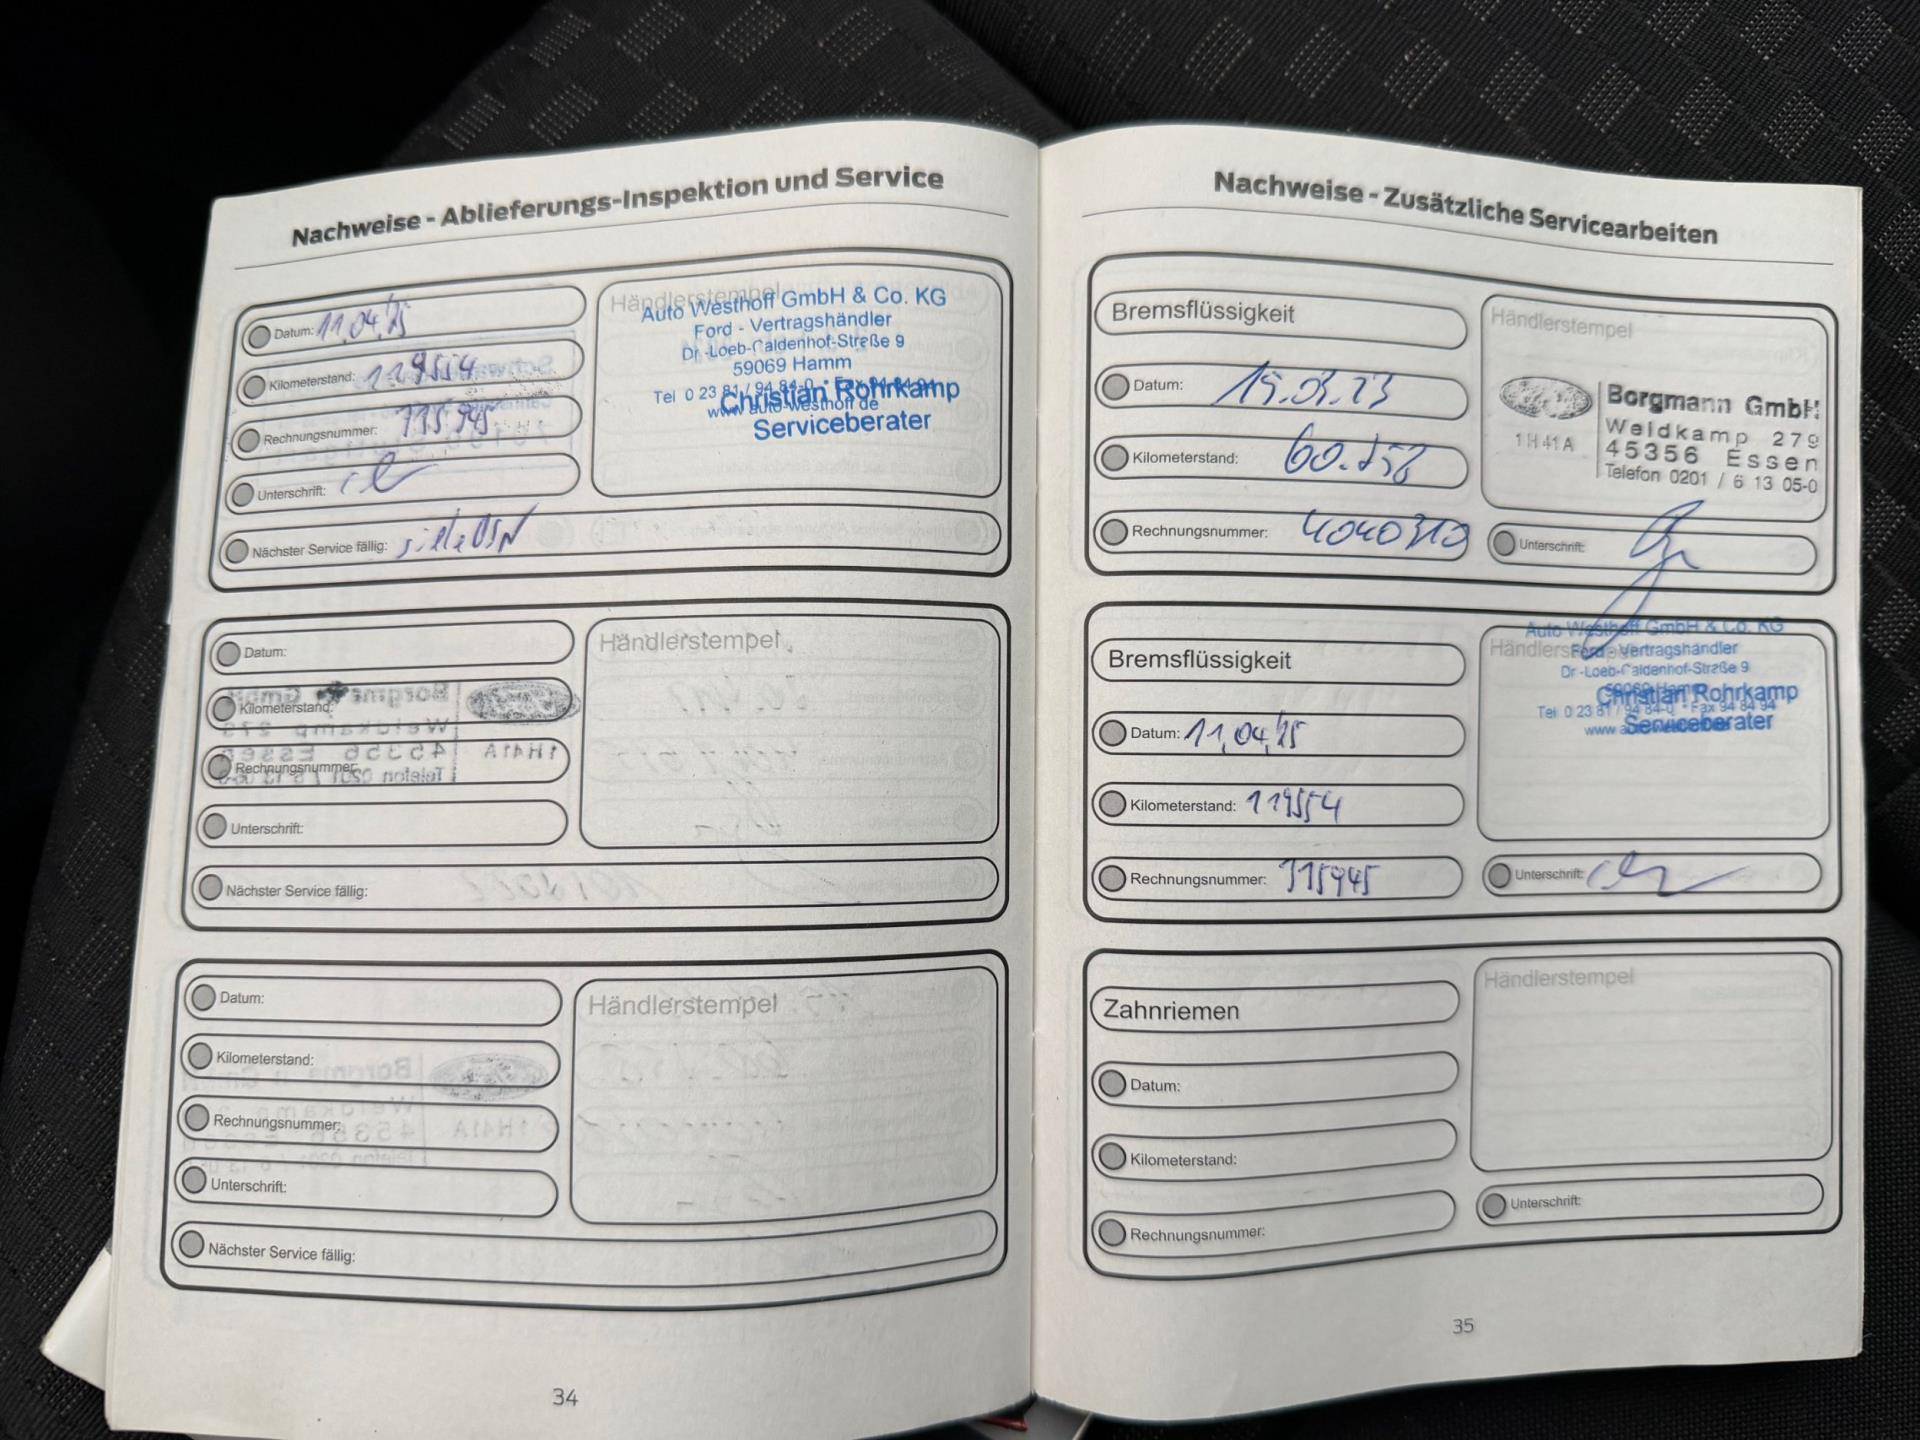 Nachweise - Ablieferungs-Inspektion und Service
Datum: 11.04.25
Kilometerstand: 119554
Rechnungsnummer: 715945
Unterschrift:
Nächster Service fällig: siehe
Händlerstempel
Auto Westhoff GmbH & Co. KG
Ford - Vertragshändler
Dr.-Loeb-Caldenhof-Straße 9
59069 Hamm
Tel 0 23 81 / 94 84-0 * Fax 94 84 94
www.auto-westhoff.de
Christian Rohrkamp
Serviceberater
Datum:
Kilometerstand:
Rechnungsnummer:
Unterschrift:
Nächster Service fällig:
Händlerstempel
Datum:
Kilometerstand:
Rechnungsnummer:
Unterschrift:
Nächster Service fällig:
Händlerstempel
34
Nachweise - Zusätzliche Servicearbeiten
Bremsflüssigkeit
Datum: 15.03.23
Kilometerstand:
Rechnungsnummer: 4040310
Händlerstempel
1H41A
Borgmann GmbH
Weldkamp 279
45356 Essen
Telefon 0201 / 6 13 05-0
Unterschrift:
Bremsflüssigkeit
Datum: 11.04.25
Kilometerstand: 119554
Rechnungsnummer: 715945
Händlerstempel
Auto Westhoff GmbH & Co. KG
Ford - Vertragshändler
Dr.-Loeb-Caldenhof-Straße 9
59069 Hamm
Tel 0 23 81 / 94 84-0 * Fax 94 84 94
Christian Rohrkamp
Serviceberater
Unterschrift:
Zahnriemen
Datum:
Kilometerstand:
Rechnungsnummer:
Händlerstempel
Unterschrift:
35